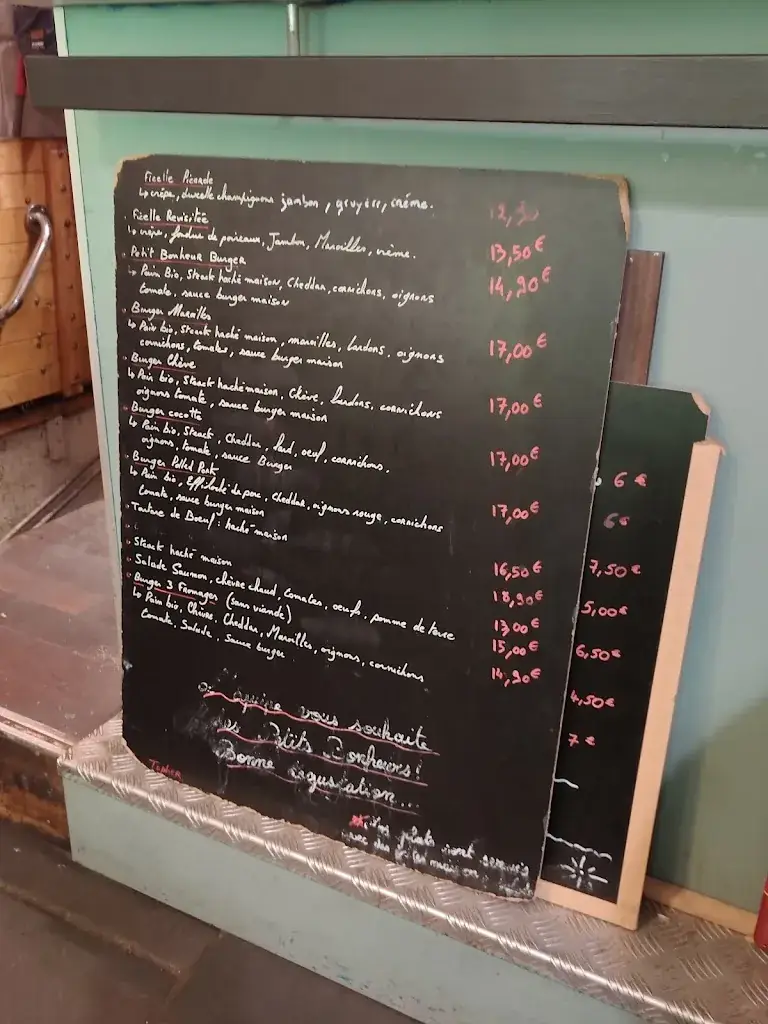 Ficelle Picarde
↳ crêpe, duxelle champignons jambon, gruyère, crème.
Ficelle Revisitée 13,50€
↳ crêpe, fondue de poireaux, Jambon, Maroilles, crème.
Petit Bonheur Burger 14,90€
↳ Pain Bio, Steack haché maison, Cheddar, cornichons, oignons
tomate, sauce burger maison
Burger Maroilles 17,00€
↳ Pain bio, Steack haché maison, maroilles, lardons, oignons
cornichons, tomates, sauce burger maison
Burger Chèvre 17,00€
↳ Pain bio, Steack haché maison, Chèvre, lardons, cornichons
oignons tomate, sauce burger maison
Burger cocotte 17,00€
↳ Pain bio, Steack, Cheddar, lard, oeuf, cornichons.
oignons, tomate, sauce Burger
Burger Pulled Pork 17,00€
↳ Pain bio, Effiloché de porc, Cheddar, oignons rouge, cornichons
tomate, sauce burger maison
Tartare de Boeuf: haché maison 16,50€
18,90€
Steack haché maison 13,00€
Salade Saumon, chèvre chaud, tomates, oeufs, pomme de terre 15,00€
Burger 3 Fromages (sans viande) 14,90€
↳ Pain bio, Chèvre, Cheddar, Maroilles, oignons, cornichons
tomate, Salade, Sauce burger
vous souhaite
Ptits Bonheurs!
Bonne dégustation...
plats sont servis
6 €
6€
7,50€
5,00€
6,50€
4,50€
7€